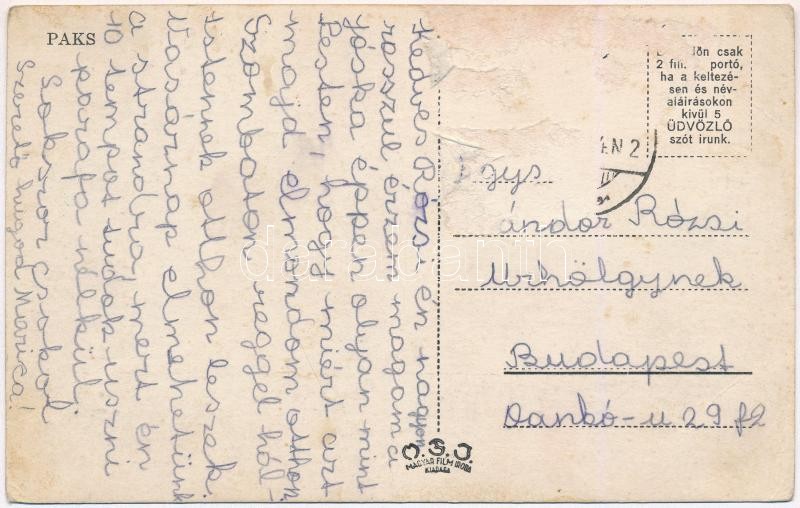 PAKS
Kedves Rózsi én nagyon
rosszul érzem magam a
Jóska éppen olyan mint
Pesten, hogy miért azt
majd elmondom otthon.
Szombaton reggel hól-
Istennek otthon leszek.
Vasárnap elmehetünk
a strandra, mert én
10 tempot tudok uszni
parafa nélkül;
Sokszor Csókol
Szerető hugod Marica!
dön csak
2 fill. portó,
ha a keltezé-
sen és név-
aláirásokon
kivül 5
ÜDVÖZLŐ
szót irunk.
EN 2
gys
ándor Rózsi
Urhölgynek
Budapest
Dankó-u 29 f2
O.S.J.
MAGYAR FILM IRODA
KIADÁSA
darabanth